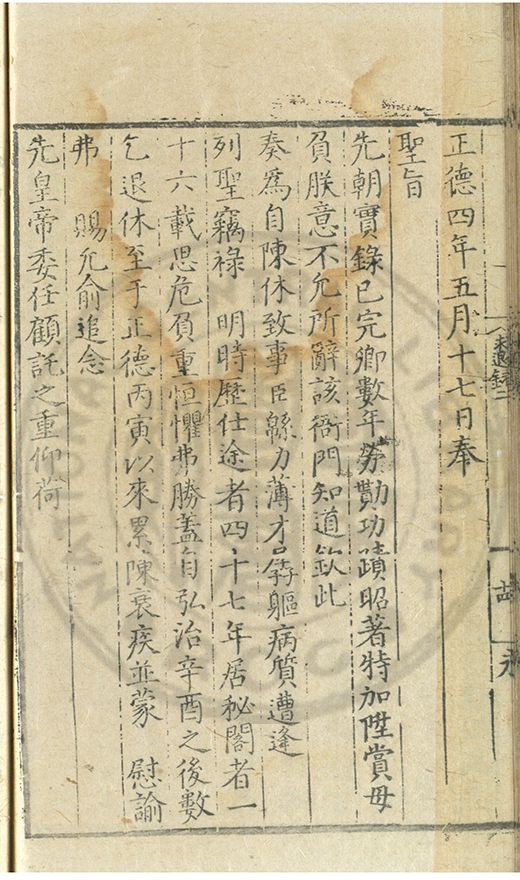 求退錄二
正德四年五月十七日奉
聖旨
先朝實錄已完卿數年勞勩功蹟昭著特加陞賞毋
負朕意不允所辭該衙門知道欽此
奏爲自陳休致事臣緜力薄才孱軀病質遭逢
列聖竊祿　明時歷仕途者四十七年居祕閣者一
十六載思危負重恒懼弗勝蓋自弘治辛酉之後數
乞退休至于正德丙寅以來累陳衰疾並蒙　慰諭
弗　賜允俞追念
先皇帝委任顧託之重仰荷